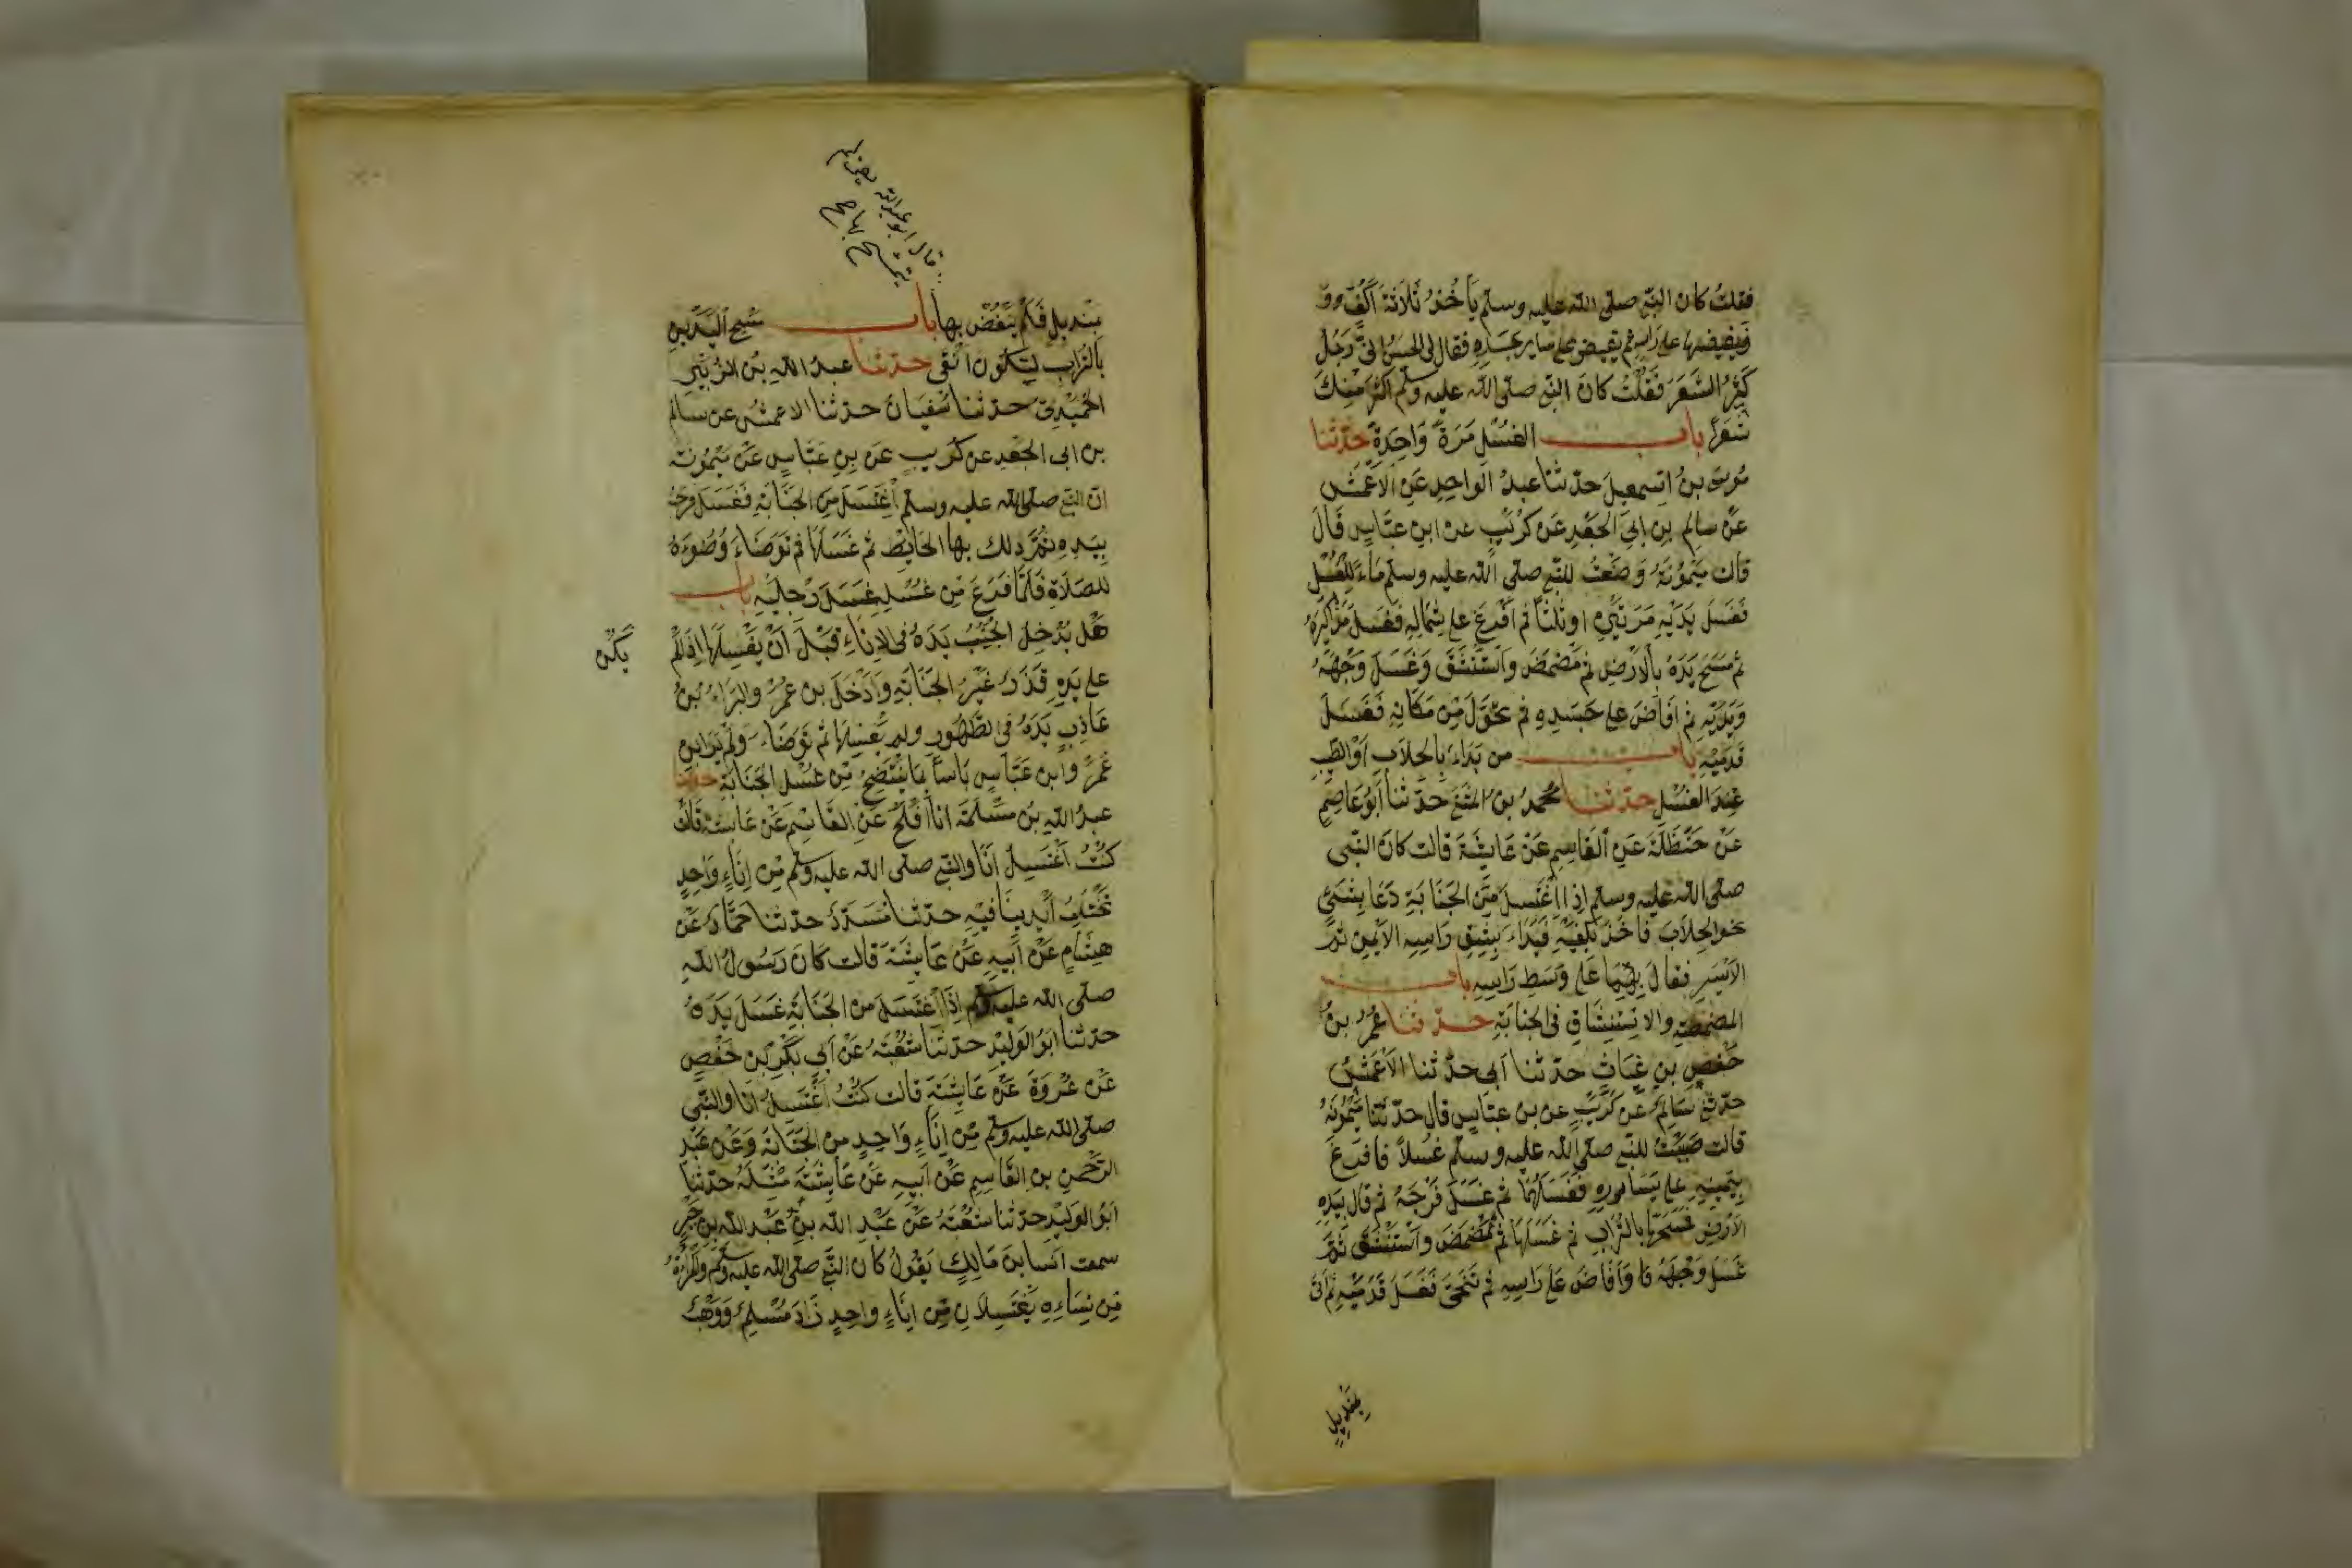 فقلتُ كان النبي صلى الله عليه وسلم يَأخُذُ ثَلاثَةَ أكُفّ
فيفيضها على رأسه ثم يفيض على سائر جسده فقال لى الحسنُ انّى رَجُلٌ
كَثِيرُ الشَّعَرِ فَقُلْتُ كانَ النبي صلى الله عليه وسلم اكثرَ مِنكَ
شَعَرًا باب الغسْلِ مَرَةً وَاحِدَةً حدّثنا
مُوسى بنُ اسمعيلَ حدّثنا عبدُ الواحِدِ عَنِ الاَعْمَشِ
عَنْ سالمِ بنِ ابِى الجَعْدِ عَن كُرَيْبٍ عن ابنِ عبّاسٍ قالَ
قالت مَيْمُونَةُ وَضَعْتُ للنبي صلى الله عليه وسلم مَاءً لِلغُسْلِ
فَغَسَلَ يَدَيْهِ مَرّتَيْنِ او ثلثًا ثم اَفْرَغَ على شِمَالِهِ فغَسَلَ مَذَاكِيرَهُ
ثم مَسَحَ يَدَهُ بالاَرْضِ ثم مَضْمَضَ وَاسْتَنْشَقَ وَغَسَلَ وَجْهَهُ
وَيَدَيْهِ ثم اَفَاضَ على جَسَدِهِ ثم تحَوّلَ مِنْ مَكَانِهِ فَغَسَلَ
قَدَمَيْهِ باب من بَدَاءَ بالحلَابِ اَوْ الطيبِ
عِندَ الغُسْلِ حدّثنا محمدُ بنُ المثنى حدّثنا أَبُو عَاصِمٍ
عَنْ حَنْظَلَةَ عَنِ القَاسِمِ عَنْ عَايِشَةَ قالت كانَ النبى
صلى الله عليه وسلم اِذا اغْتَسَلَ مِنَ الجَنَابَةِ دَعَا بِشَىْءٍ
نحو الحِلَابَ فَاَخَذَ بكَفّيْهِ فَبَدَاءَ بِشِقِ رَاسِهِ الاَيْمِنِ ثم
الاَيْسَرِ فقالَ بِهِمَا عَلى وَسَطِ رَاسِهِ باب
المضمضةِ والاستِنْشَاقِ فى الجنابَةِ حدّثنا عُمَرُ بنُ
حَفْصِ بنِ غِيَاثٍ حدّثنا اَبى حدّثنا الاَعْمَشُ
حدّثنى سَالِمٌ عَنْ كُرَيْبٍ عن بنِ عبّاسٍ قال حدّثتنا مَيْمُونَةُ
قالت صَبَبْتُ للنبي صلى الله عليه وسلم غُسْلًا فافرغَ
بِيَمِينِهِ على يَسَارِهِ فَغَسَلَهُمَا ثم غَسَلَ فَرْجَهُ ثم قال بِيَدِهِ
الاَرْضَ فمَسَحَهَا بالتُّرَابِ ثم غَسَلَهَا ثم تمَضْمَضَ وَاسْتَنْشَقَ ثمّ
غَسَلَ وَجْهَهُ وَاَفَاضَ عَلى رَاسِهِ ثم تَنَحّى فَغَسَلَ قَدَمَيْهِ ثم اُتى
بِمَنْدِيلٍ
قال ابو عبد الله يعنى لم
يتمسح بها صح
بِمَنْدِيلٍ فَلَمْ يَنْفُضْ بها باب مَسْحِ اليَدَينِ
بالتُّرَابِ لِيَكُونَ اَنْقى حدّثنا عبدُ اللهِ بنُ الزُبَيْرِ
الحُمَيْدِىّ حدّثنا سُفيَانُ حدّثنا الاعمشُ عن سالم
بن ابى الجَعْدِ عن كُرَيبٍ عَن بنِ عَبّاسٍ عَنْ مَيْمُونَةَ
انّ النبي صلى الله عليه وسلم اغْتَسَلَ مِنَ الجَنَابَةِ فَغَسَلَ فَرْجَهُ
بِيَدِهِ ثمّ دلكَ بها الحَايِطَ ثم غَسَلَهَا ثم تَوَضَاءَ وُضُوءَهُ
للصَلَاةِ فَلَمّا فَرَغَ مِنْ غُسْلِهِ غَسَلَ رِجْلَيْهِ باب
هَل يُدْخِلُ الجُنُبُ يَدَهُ فى الاِنَاءِ قَبْلَ اَنْ يَغْسِلَهَا اِذَا لَمْ
يَكُنْ
على يَدِهِ قَذَرٌ غَيْرُ الجَنَابَةِ وَاَدْخَلَ بن عُمَرَ والبرَاءُ بنُ
عَازِبٍ يَدَهُ فى الطَهُورِ ولم يَغْسِلهَا ثم تَوَضَاءَ وَلَمْ يَرَ ابن
عُمَرَ وابن عَبّاسٍ بَاسًا بمَا يَنْتَضِحُ مِنْ غُسْلِ الجَنَابَةِ حدثنا
عبدُ اللهِ بنُ مَسْلَمَةَ انا اَفْلَحُ عَنِ القَاسِم عَنْ عَايشة قالت
كنتُ اَغْتَسِلُ اَنَا والنبي صلى الله عليه وسلم مِن اِنَاءٍ وَاحِدٍ
تَخْتَلِفُ اَيْدِينَا فيهِ حدّثنا مُسَدّدٌ حدّثنا حَمّادٌ عَنْ
هِشَامٍ عَنْ اَبِيهِ عَنْ عَايِشَةَ قالت كَانَ رَسُولُ اللهِ
صلى الله عليه وسلم اِذَا اغْتَسَلَ من الجَنَابَةِ غَسَلَ يَدَهُ
حدّثنا ابُو الوَليْدِ حدّثنا شُعْبَةُ عَنْ اَبى بَكْرِ بْنِ حَفْصٍ
عَن عُرْوَةَ عَنْ عَايِشَةَ قالت كنْتُ اَغْتَسِلُ اَنَا والنّبى
صلى الله عليه وسلم مِن اِنَاءٍ وَاحِدٍ من الجَنَابَةِ وَعَن عَبْدِ
الرّحْمنِ بنِ القَاسِمِ عَنْ اَبِيهِ عَنْ عَايِشَةَ مِثْلَهُ حدّثنا
ابُو الوَليْدِ حدّثنا شعْبَةُ عَنْ عَبْدِ اللهِ بنِ عَبْدِ اللهِ بنِ جَبْرٍ
سمعت انَسَ ابنَ مَالِكٍ يَقُولُ كانَ النبي صلى الله عليه وسلم وَالمَرْأَةُ
مِن نِسَاءِهِ يَغْتَسِلَانِ مِن اِنَاءٍ واحِدٍ زَادَ مُسْلِمٌ وَوَهْبٌ